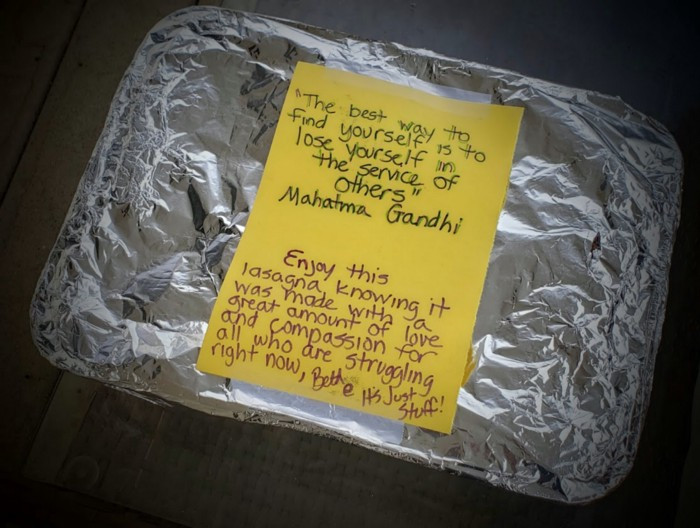 "The best way to
find yourself is to
lose yourself in
the service of
others"
Mahatma Gandhi
Enjoy this
lasagna knowing it
was made with a
great amount of love
and compassion for
all who are struggling
right now, Beth@ It's Just
Stuff!